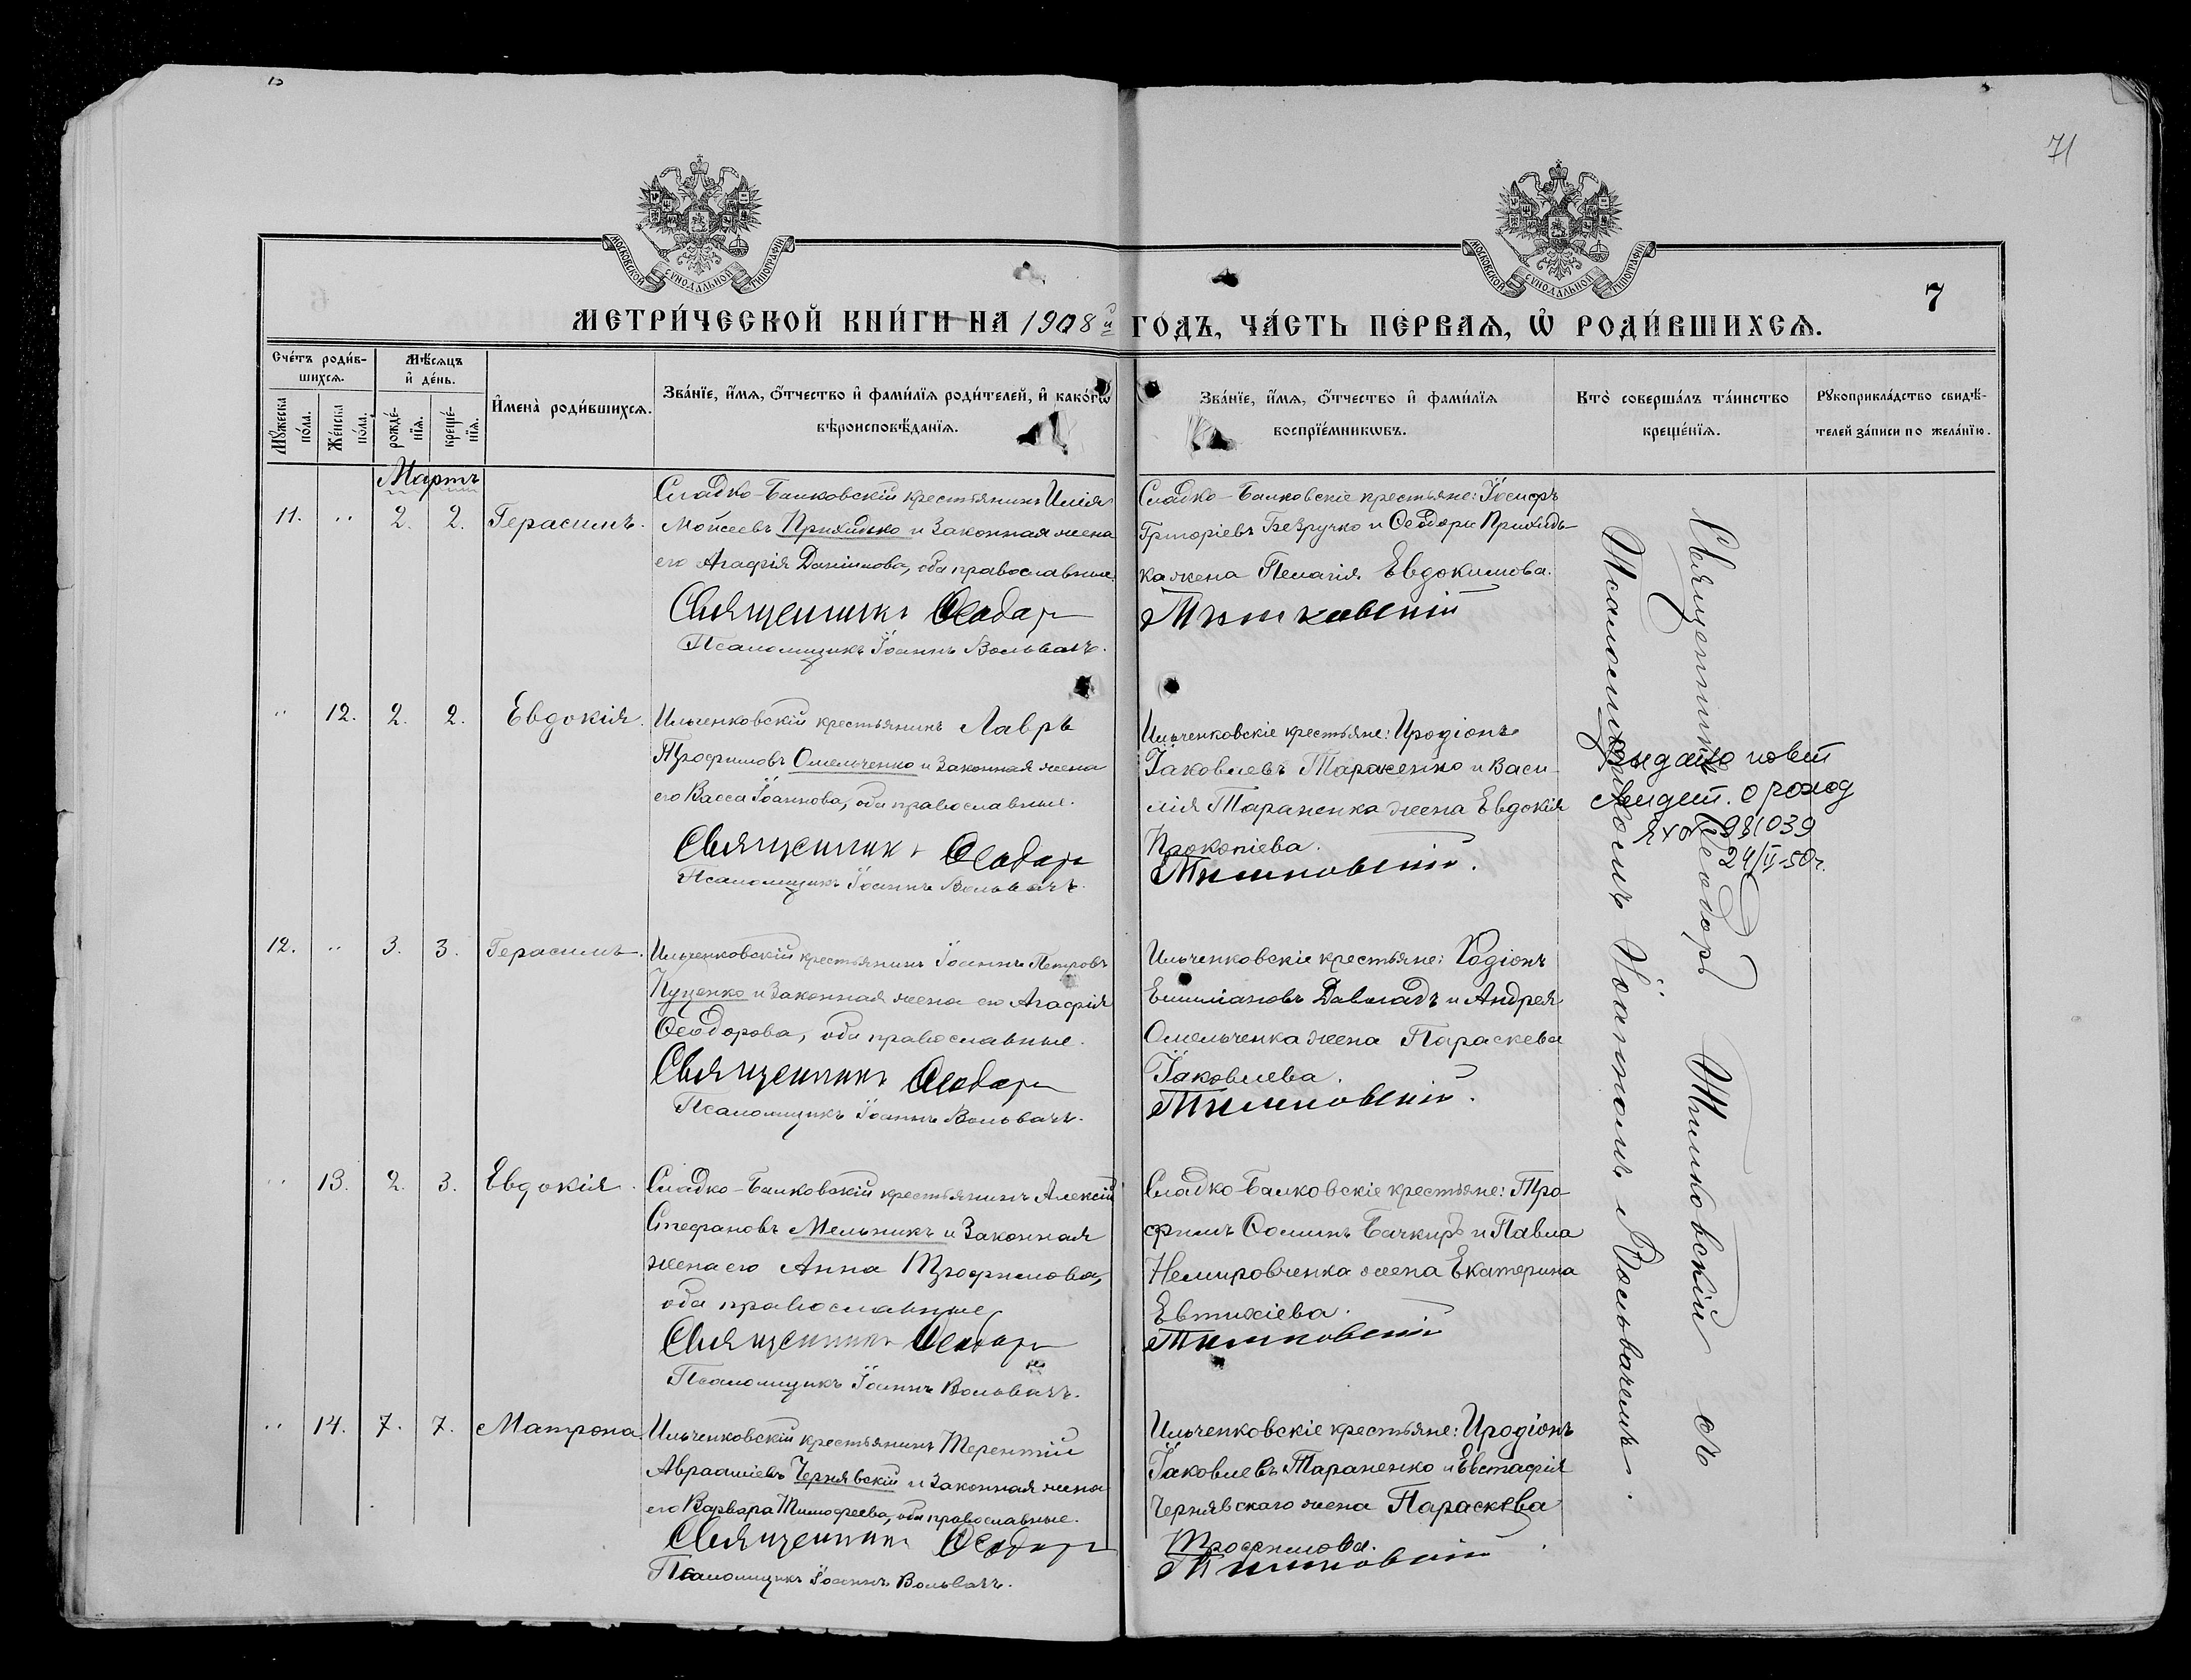 71
МОСКОВСКОЙ СѴНОДАЛЬНОЙ ТИПОГРАФІИ
МОСКОВСКОЙ СѴНОДАЛЬНОЙ ТИПОГРАФІИ
7
МЕТРИ́ЧЕСКОЙ КНИ́ГИ НА 1908й ГО́ДЪ, ЧА́СТЬ ПЕ́РВАЯ, Ѡ҆ РОДИ́ВШИХСЯ.
Сче́тъ роди́в-
шихся.
Мѣ́сяцъ
и҆ де́нь.
Мꙋ́жеска по́ла.
Же́нска по́ла.
рожде́-
нїя.
креще́-
нїя.
И҆мена̀ роди́вшихся.
Зва́нїе, и҆́мя, ѻ҆́тчество и҆ фами́лїя роди́телей, и҆ како́гѡ
вѣроисповѣ́данїя.
Зва́нїе, и҆́мя, ѻ҆́тчество и҆ фами́лїя
воспрїе́мникѡвъ.
Кто̀ соверша́лъ та́инство
креще́нїя.
Рꙋкоприкла́дство свидѣ́-
телей за́писи по жела́нїю.
Мартъ
11. " 2. 2. Герасимъ.
Сладко-Балковскій крестьянинъ Илія
Моисеевъ Приходько и законная жена
его Агафія Даніилова, оба православные.
Священникъ Ѳеодоръ
Псаломщикъ Іоаннъ Вольвачъ.
Сладко-Балковскіе крестьяне: Іосифъ
Григоріевъ Безручко и Ѳеодора Приходь-
ка жена Пелагія Евдокимова.
Тимковскій
" 12. 2. 2. Евдокія.
Ильченковскій крестьянинъ Лавръ
Трофимовъ Омельченко и законная жена
его Васса Іоаннова, оба православные.
Священникъ Ѳеодоръ
Псаломщикъ Іоаннъ Вольвачъ.
Ильченковскіе крестьяне: Иродіонъ
Іаковлевъ Тараненко и Васи-
лія Тараненка жена Евдокія
Прокопіева.
Тимковскій.
12. " 3. 3. Герасимъ.
Ильченковскій крестьянинъ Іоаннъ Петровъ
Куценко и законная жена его Агафія
Ѳеодорова, оба православные.
Священникъ Ѳеодоръ
Псаломщикъ Іоаннъ Вольвачъ.
Ильченковскіе крестьяне: Родіонъ
Емиліановъ и Андрея
Омельченка жена Параскева
Іаковлева.
Тимковскій.
" 13. 2. 3. Евдокія.
Сладко-Балковскій крестьянинъ Алексій
Стефановъ Мельникъ и законная
жена его Анна Трофимова,
оба православные
Священникъ Ѳеодоръ
Псаломщикъ Іоаннъ Вольвачъ.
Сладко-Балковскіе крестьяне: Тро-
фимъ Ѳоминъ и Павла
Немировченка жена Екатерина
Евтихіева.
Тимковскій
" 14. 7. 7. Матрона
Ильченковскій крестьянинъ Терентій
Авраамiевъ Чернявскій и законная жена
его Варвара Тимофеева, оба православные.
Священникъ Ѳеодоръ
Псаломщикъ Іоаннъ Вольвачъ.
Ильченковскіе крестьяне: Иродіонъ
Іаковлевъ Тараненко и Евстафія
Чернявскаго жена Параскева
Трофимова.
Тимковскій
Священникъ Ѳеодоръ Тимковскій съ
Псаломщикомъ Іоанномъ Вольвачемъ.
выдано
свидет. о рожд
981039
24/II-50г.